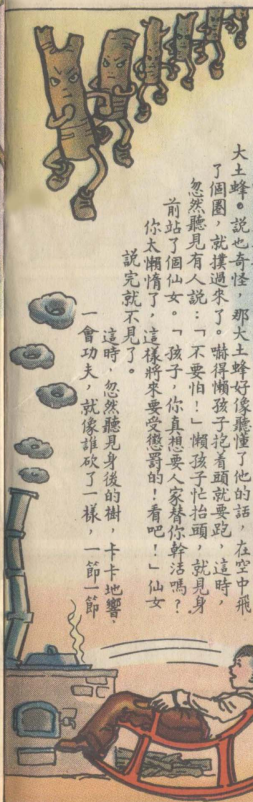 大土蜂。說也奇怪，那大土蜂好像聽懂了他的話，在空中飛
了個圈，就撲過來了。嚇得懶孩子抱着頭就要跑，這時，
忽然聽見有人說：「不要怕！」懶孩子忙抬頭，就見身
前站了個仙女。「孩子，你真想要人家替你幹活嗎？
你太懶惰了，這樣將來要受懲罰的！看吧！」仙女
說完就不見了。
這時，忽然聽見身後的樹，卡卡地響，
一會功夫，就像誰砍了一樣，一節一節